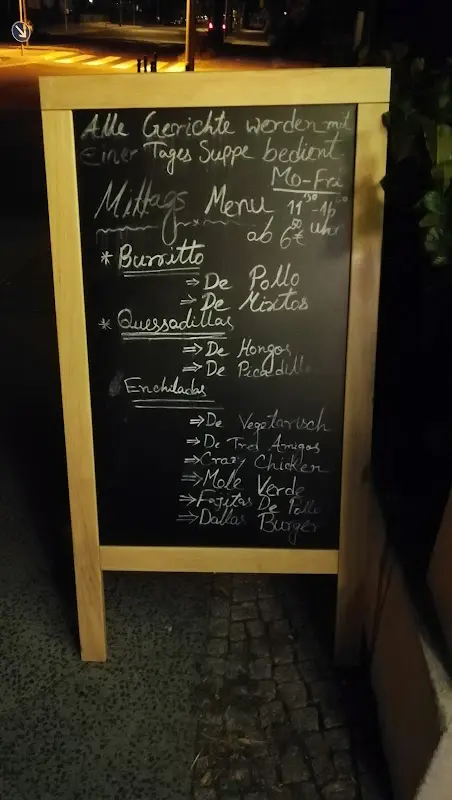 Alle Gerichte werden mit
Einer Tages Suppe bedient
Mo-Fri
Mittags Menu 11³⁰-16⁰⁰ Uhr
ab 6⁵⁰€
* Burritto
⇒ De Pollo
⇒ De Mixtos
* Quessadillas
⇒ De Hongos
⇒ De Picadillo
Enchiladas
⇒ De Vegetarisch
⇒ De Tres Amigos
⇒ Crazy Chicken
⇒ Mole Verde
⇒ Fajitas De Pollo
⇒ Dallas Burger